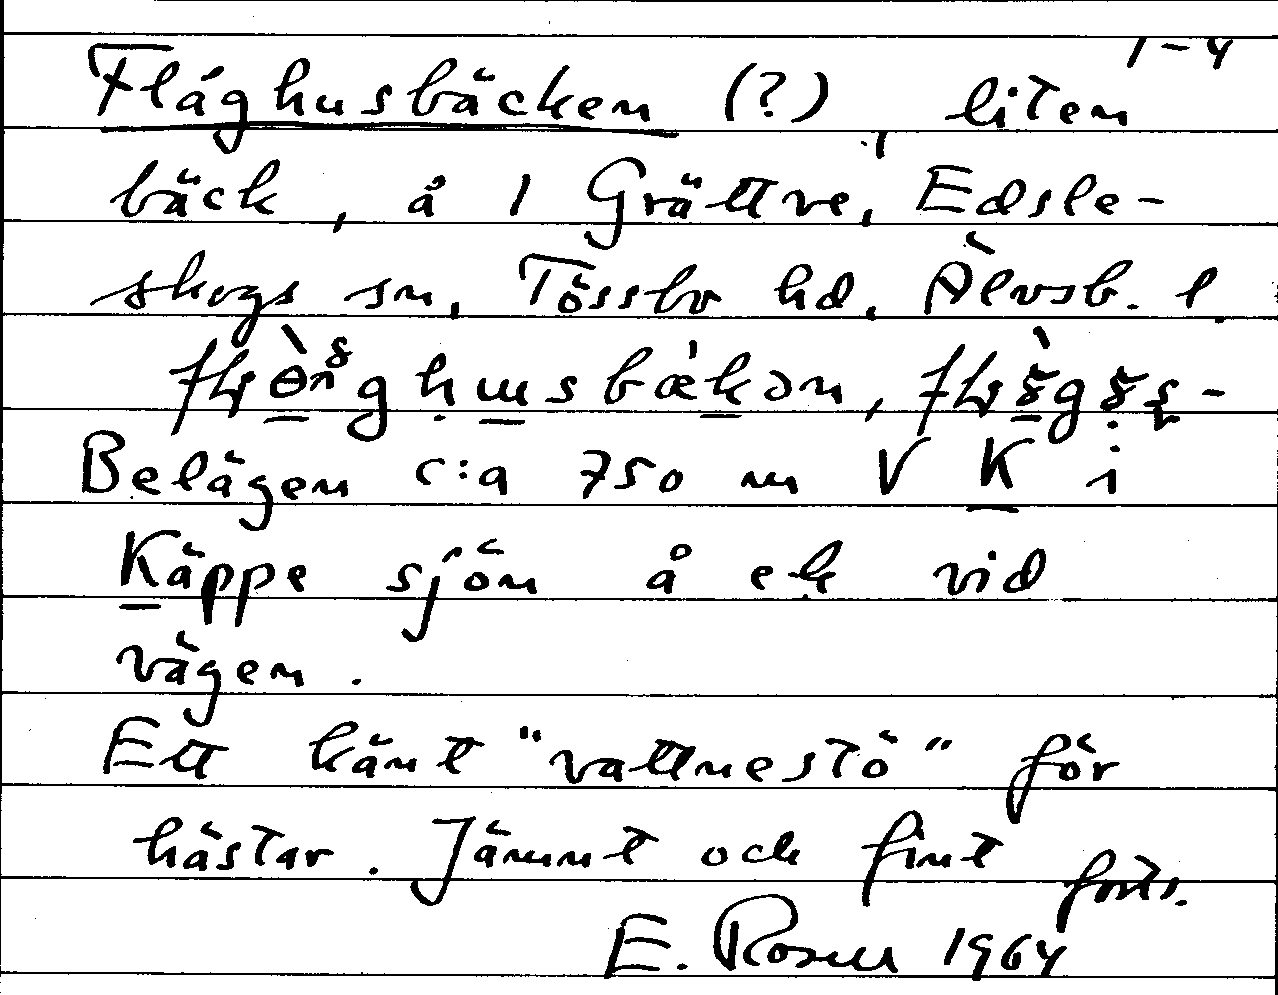 1-4
Flåghusbäcken (?), liten
bäck, å 1 Grättve, Edsle-
skogs sn, Tössbo hd, Älvsb. l.
Belägen c:a 750 m V K i
Käppe sjön å ek vid
vägen.
Ett känt "vattnestö" för
hästar. Jämnt och fint
forts.
E. Rosell 1964